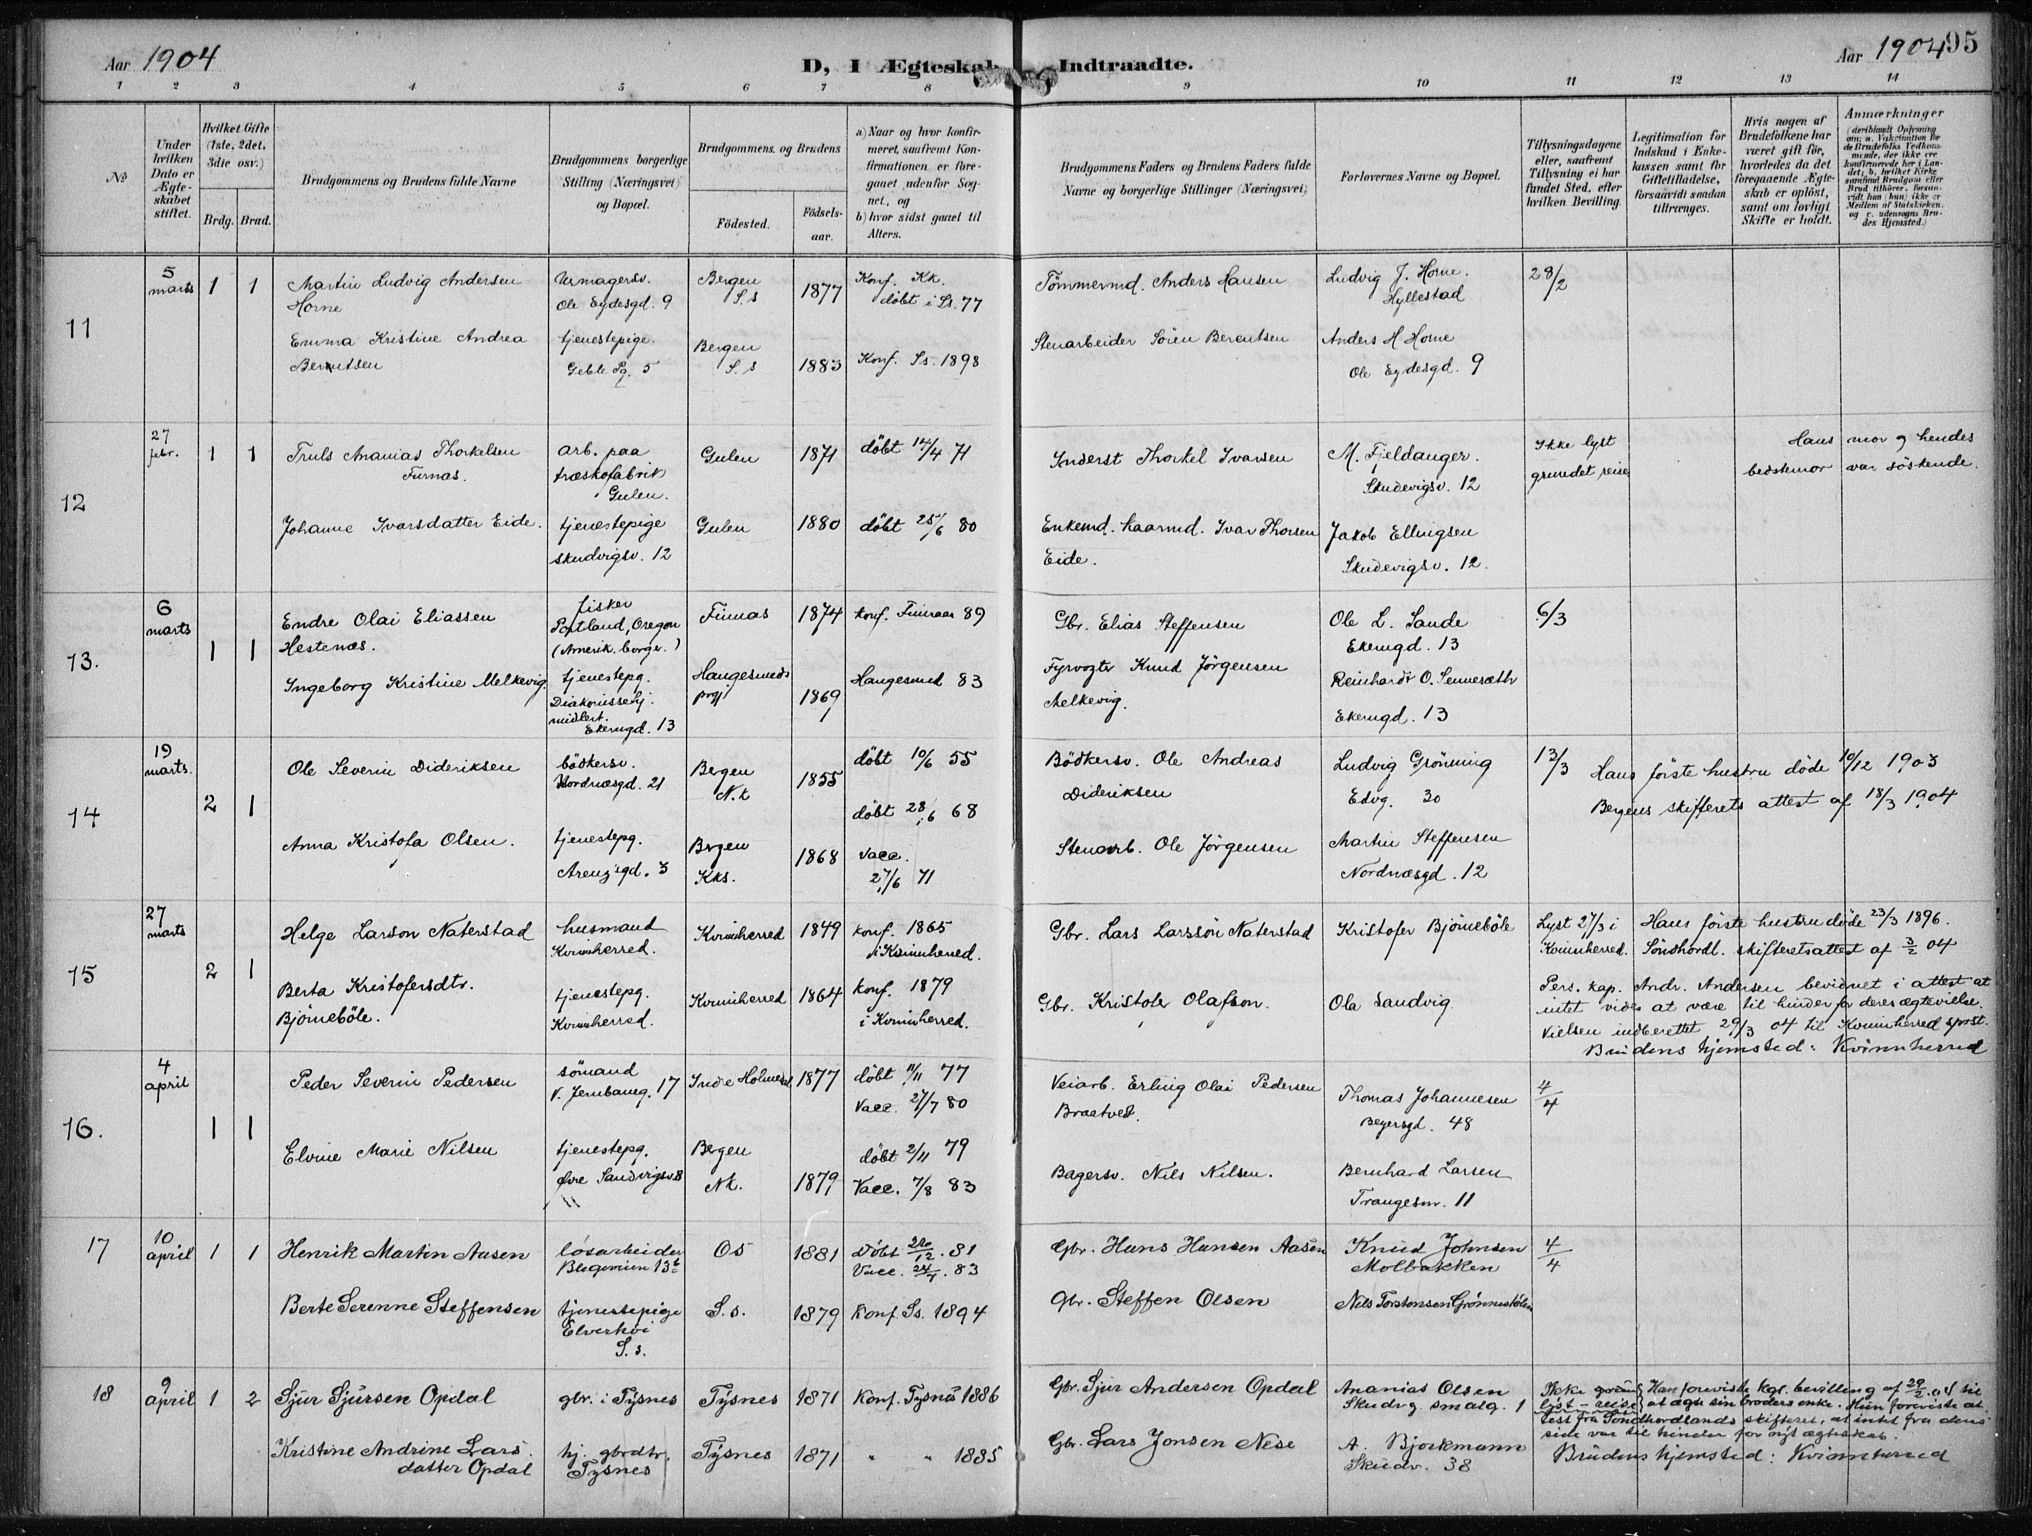 Aar 1904
D, I Ægteskab Indtraadte.
Aar 1904
95
1 2 3 4 5 6 7 8 9 10 11 12 13 14
No
Under hvilken Dato er Ægteskabet stiftet.
Hvilket Gifte (1ste, 2det, 3die osv.)
Brdg. Brud.
Brudgommens og Brudens fulde Navne
Brudgommens borgerlige Stilling (Næringsvei) og Bopæl.
Brudgommens og Brudens
Födested.
Födsels-aar.
a) Naar og hvor konfirmeret, saafremt Konfirmationen er foregaaet udenfor Sognet, og
b) hvor sidst gaaet til Alters.
Brudgommens Faders og Brudens Faders fulde Navne og borgerlige Stillinger (Næringsvei)
Forlovernes Navne og Bopæl.
Tillysningsdagene eller, saafremt Tillysning ei har fundet Sted, efter hvilken Bevilling.
Legitimation for Indskud i Enkekassen samt for Giftetilladelse, forsaavidt saadan tiltrænges.
Hvis nogen af Brudefolkene har været gift før, hvorledes da det foregaaende Ægteskab er oplöst, samt om lovligt Skifte er holdt.
Anmærkninger
11
5 marts
1 1
Martin Ludvig Andersen
Horne
Ole Eydesgd. 9
Bergen
S. s
1877
Konf. Kk.
døbt i Ss. 77
Tömmermd. Anders Hansen
Ludvig J. Horne.
Hyllestad
28/2
Emma Kristine Andrea
Berentsen
tjenestepige.
Geble Pg. 5
Bergen
S. s
1883
Konf. Ss. 1898
Stenarbeider Sören Berentsen
Anders H Horne
Ole Eydesgd. 9
12
27 febr.
1 1
Truls Ananias Thorkelsen
Furnæs.
arb. paa
træskofabrik
Gulen.
Gulen
1871
døbt 14/4 71
Inderst Thorkel Ivarsen
M. Fjeldanger.
Skudevigsv. 12
Ikke lyst
grundet reise
Hans mor og hendes
bedstemor var söskende.
Johanne Ivarsdatter Eide.
tjenestepige
Skudvigsv. 12
Gulen
1880
døbt 25/6 80
Enkemd. haarmd. Ivar Thorsen
Eide.
Jakob Ellingsen
Skudevigsv. 12.
13.
6 marts
1 1
Endre Olai Eliassen
Hestenæs.
fisker
Portland, Oregon
(Amerik. borger.)
Fimas
1874
konf. Fimraas 89
Gbr. Elias Steffensen
Ole L. Sande
Ekerngd. 13
6/3
Ingeborg Kristine Melkevig.
tjenestepg.
Diakonissehj.
midlert.
Ekerngd. 13
Haugesunds
prgj
1869
Haugesund 83
Fyrvogter Knud Jörgensen
Melkevig.
Reinhardt O. Sennesæth
Ekerngd. 13
14
19 marts.
2 1
Ole Severin Dideriksen
bödkersv.
Nordnæsgd. 21
Bergen
N.k
1855
døbt 10/6 55
Bödkersv. Ole Andreas
Dideriksen
Ludvig Grönning
Edvg. 30
13/3
Hans første hustru döde 10/12 1903
Bergens skifterets attest af 18/3 1904
Anna Kristofa Olsen.
tjenestepg.
Arenzgd. 3
Bergen
Kks.
1868
døbt 28/6 68
Vacc.
27/6 71
Stenarb. Ole Jörgensen
Martin Steffensen
Nordnæsgd. 12
15
27 marts
2 1
Helge Larson Naterstad
husmand
Kvinnherred.
Kvinnherred
1849
konf. 1865
i Kvinnherred.
Gbr. Lars Larssön Naterstad
Kristofer Björnebøle
Lyst 27/3 i
Kvinnherred.
Hans første hustru døde 23/3 1896.
Söndhordl. skifteretsattest af 3/2 04
Berta Kristofersdtr.
Bjørnebøle.
tjenestepg.
Kvinnherred.
Kvinnherred
1864
konf. 1879
i Kvinnherred.
Gbr. Kristofer Olafson.
Ola Sandvig
Pers. kap. Andr. Andersen bevidnet i attest at
intet vides at være til hinder for deres ægtevielse.
Vielsen indberettet 29/3 04 til Kvinnherred sprst.
Brudens hjemsted: Kvinnherred
16.
4 april
1 1
Peder Severin Pedersen
sömand
V. Jernbaneg. 17
Indre Holmedal
1877
døbt 11/11 77
Vacc. 27/7 80
Veiarb. Erling Olai Pedersen
Braatvedt.
Thomas Johannesen
Beyersgd. 48
4/4
Elvine Marie Nilsen
tjenestepg.
Øvre Sandvigsv 8
Bergen
Nk.
1879
døbt 2/11 79
Vacc. 7/8 83
Bagersv. Nils Nilsen.
Bernhard Larsen
Trangesm. 11
17
10 april
1 1
Henrik Martin Aasen
løsarbeider
Blegeveien 13b
Os
1881
Døbt 26/12. 81
Vacc. 24/7. 83
Gbr. Hans Hansen Aasen
Knud Johnsen
Molbakken
4/4
Berte Serenne Steffensen
tjenestepige
Elverhöi
S. s.
S. s.
1879
Konf. Ss. 1894
Gbr. Steffen Olsen
Nils Torstensen Grønnestølen
18
9 april
1 2
Sjur Sjursen Opdal
gbr. i Tysnes
Tysnes
1871
Konf. Tysnes 1886
Gbr. Sjur Andersen Opdal
Ananias Olsen
Skudvg smalg. 1
Ikke
lyst - reise
Han foreviste kgl. bevilling af 29/2. 04 til
at ægte sin broders enke. Hun foreviste at-
test fra Söndhordlands skifteret, at intet fra dens
side var til hinder for nyt ægteskab.
Kristine Andrine Lars
datter Opdal
hj. gbrdtr.
Tysnes
Tysnes
1871
" " 1885
Gbr. Lars Jonsen Nese
A. Bjorkmann
Skudv. 38
Brudens hjemsted: Kvinnherred